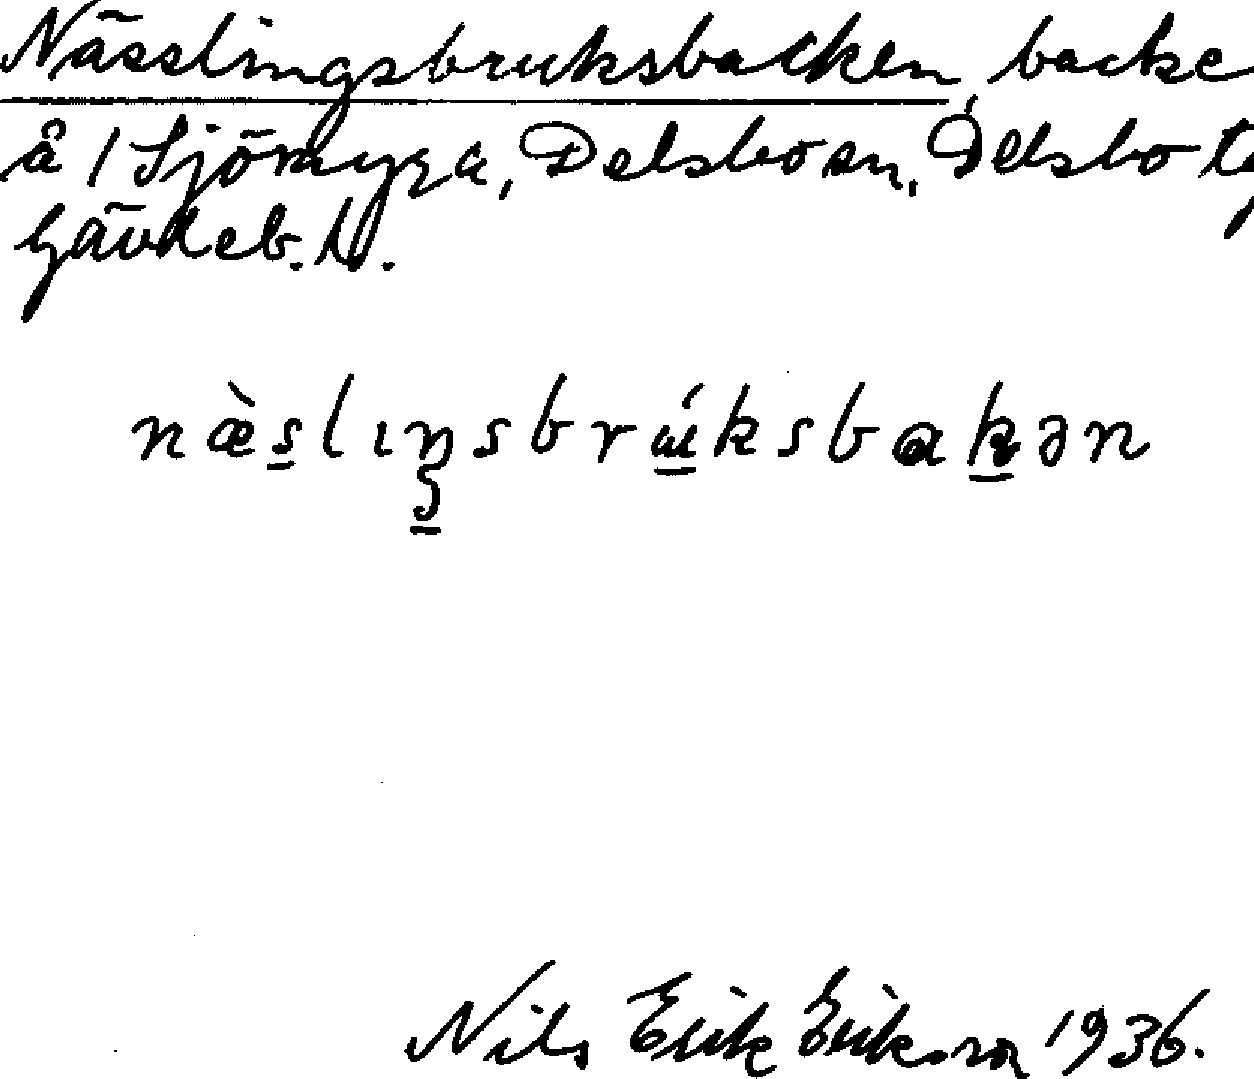 Nässlingsbruksbacken backe
å 1 Sjömyra, Delsbo sn, Delsbo tg
Gävleb. l.
næ̀s̲lıŋ̲sbrɯ̲́ksbak̲ən
Nils Erik Eriksson 1936.